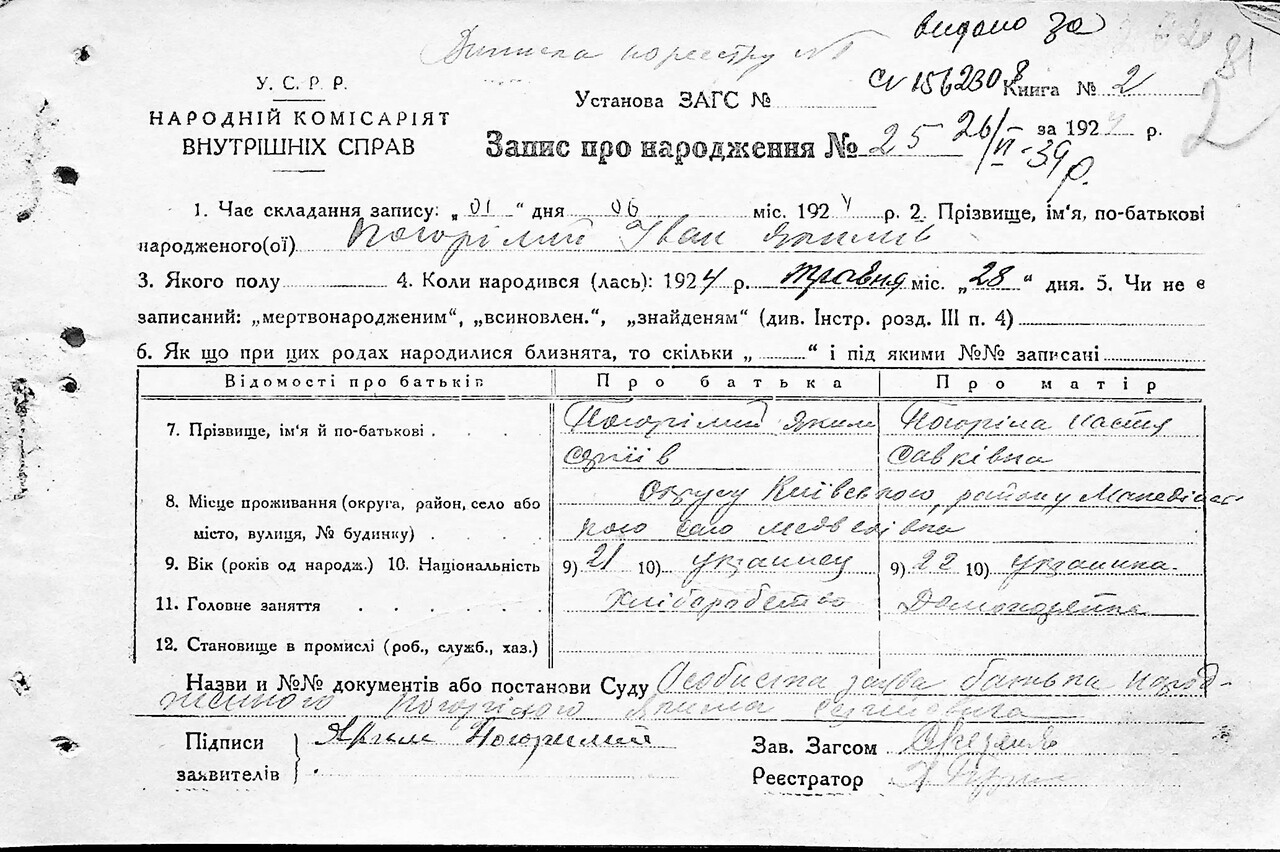 видано за
Виписка по реєстру №
У.С.Р.Р.
НАРОДНІЙ КОМІСАРІЯТ
ВНУТРІШНІХ СПРАВ
Установа ЗАГС № СЛ 1562308 Книга № 2
81
2
Запис про народження № 25 за 1924 р.
26/VI-39 р.
1. Час складання запису: „01“ дня 06 міс. 1924 р. 2. Прізвище, ім'я, по-батькові
народженого(ої) Погорілий Іван Якимів
3. Якого полу 4. Коли народився (лась): 1924 р. травня міс. „28“ дня. 5. Чи не є
записаний: „мертвонародженим“, „всиновлен.“, „знайденям“ (див. Інстр. розд. III п. 4)
6. Як що при цих родах народилися близнята, то скільки „ “ і під якими №№ записані
Відомості про батьків Про батька Про матір
7. Прізвище, ім'я й по-батькові . . . . Погорілий Яким Погоріла Настя
Савківна
8. Місце проживання (округа, район, село або Округу Київського, району
місто, вулиця, № будинку) . . . . село Медведівка
9. Вік (років од народж.) 10. Національність 9) 21 10) украинец 9) 22 10) украинка
11. Головне заняття . . . . . Хліборобство Домохозяйка
12. Становище в промислі (роб., служб., хаз.)
Назви и №№ документів або постанови Суду Особиста заява батька народ-
женного Погорілого Якима
Підписи Яким Погорилий Зав. Загсом
заявителів Реєстратор